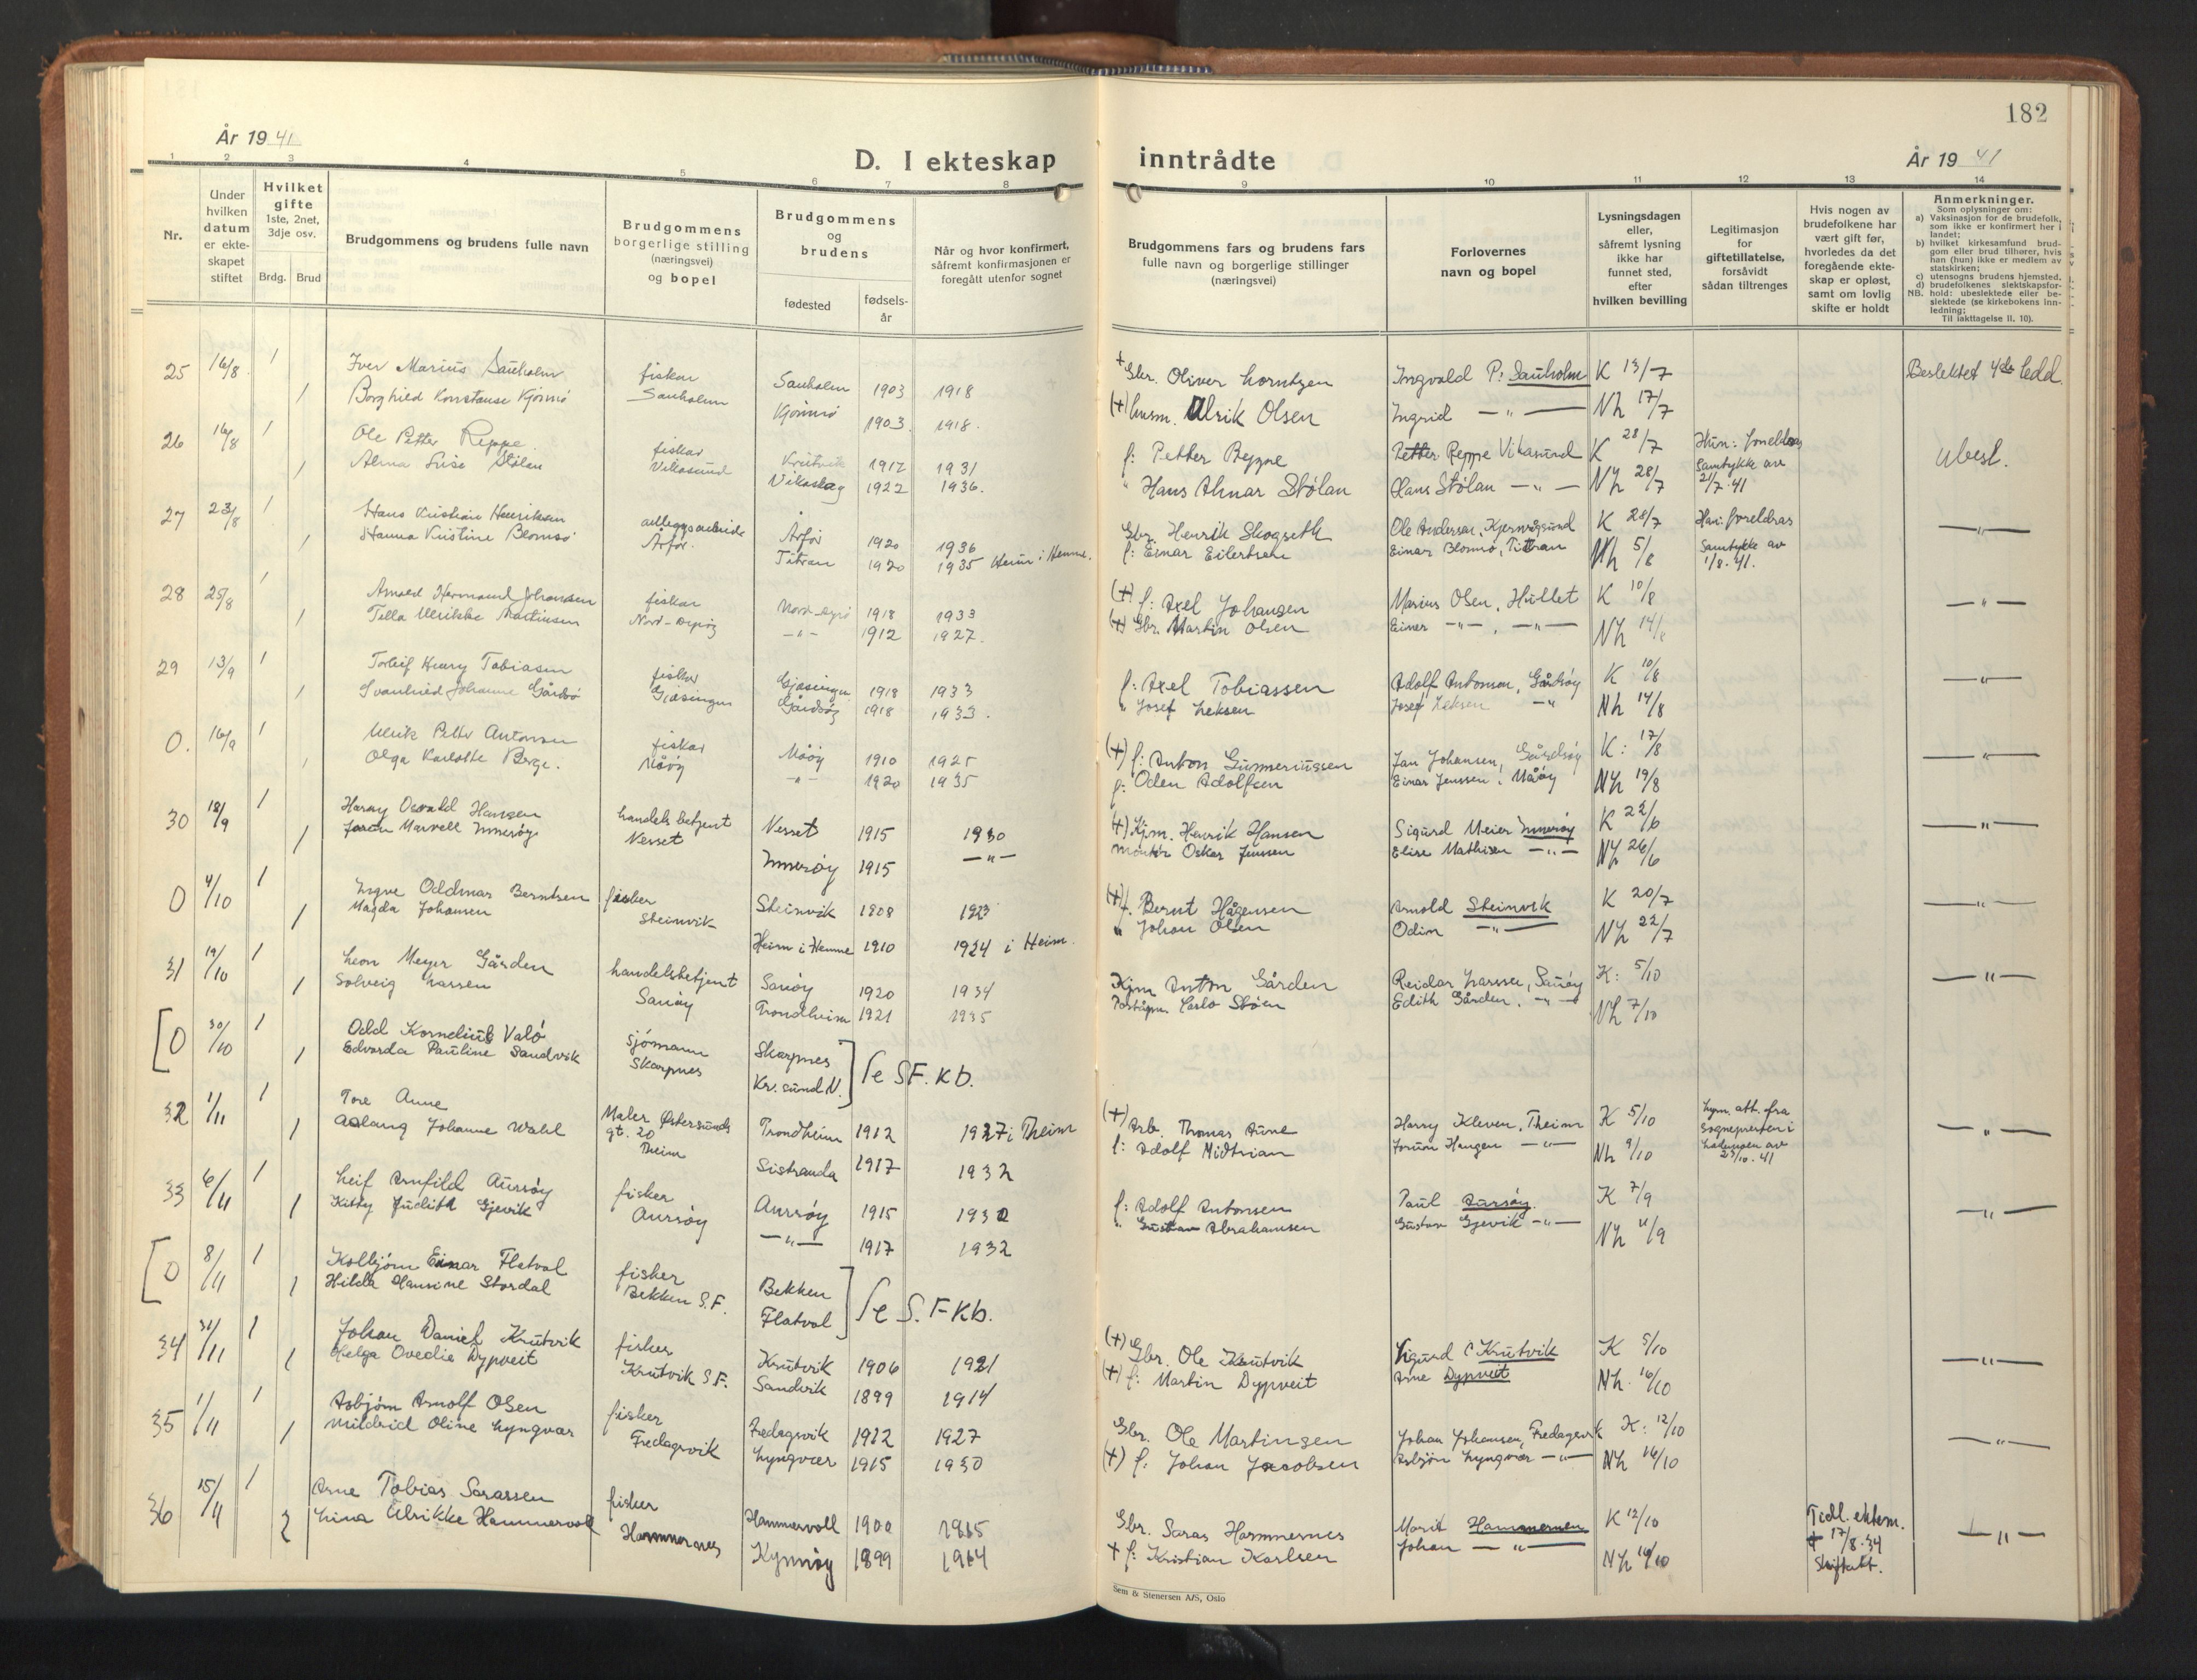 182
År 1941
D. I ekteskap inntrådte
År 1941
1 2 3 4 5 6 7 8 9 10 11 12 13 14
Nr.
Under hvilken datum er ekteskapet stiftet
Hvilket gifte 1ste, 2net, 3dje osv.
Brdg. Brud
Brudgommens og brudens fulle navn
Brudgommens borgerlige stilling (næringsvei) og bopel
Brudgommens og brudens
fødested
fødselsår
Når og hvor konfirmert, såfremt konfirmasjonen er foregått utenfor sognet
Brudgommens fars og brudens fars fulle navn og borgerlige stillinger (næringsvei)
Forlovernes navn og bopel
Lysningsdagen eller, såfremt lysning ikke har funnet sted, efter hvilken bevilling
Legitimasjon for giftetillatelse, forsåvidt sådan tiltrenges
Hvis nogen av brudefolkene har vært gift før, hvorledes da det foregående ekteskap er opløst, samt om lovlig skifte er holdt
Anmerkninger.
Som oplysninger om:
a) Vaksinasjon for de brudefolk, som ikke er konfirmert her i landet;
b) hvilket kirkesamfund brudgom eller brud tilhører, hvis han (hun) ikke er medlem av statskirken;
c) utensogns brudens hjemsted.
d) brudefolkenes slektskapsforhold: ubeslektede eller beslektede (se kirkebokens innledning;
NB. Til iakttagelse II. 10).
25 16/8 1 Iver Marius Sauholm fiskar Sauholm 1903 1918 + Gbr. Oliver Lorntzen Ingvald P. Sauholm K 13/7 Beslektet 4de ledd.
1 Borghild Konstanse Kjønnø Sauholm Kjønnø 1903 1918. (+) husm. Ulrik Olsen Ingrid —"— Nh 17/7
26 16/8 1 Ole Petter Reppe. fiskar Krutvik 1917 1931 f: Petter Reppe Petter Reppe Vikasund K 28/7 Hun: foreldres ubesl.
1 Alma Lise Stølan Vikasund Vikaslag 1922 1936. " Hans Almar Stølan Hans Stølan —"— Nh 28/7 Samtykke av 21/7-41
27 23/8 1 Hans Kristian Henriksen anleggsarbeider Årfor 1920 1936 Gbr. Henrik Skogseth Ole Andersen, Kjerringsund K 28/7 Han: foreldres —"—
1 Hanna Kristine Blomsø Årfor. Titran 1920 1935 Heim i Hemne. f: Einar Eilertsen Einar Blomsø, Titran Nh 5/8 Samtykke av 1/8.41.
28 25/8 1 Arnold Hermand Johansen fiskar Nord-Dyrø 1918 1933 (+) f: Axel Johansen Marius Olsen, Hullet K 10/8 —"—
1 Tella Ulrikke Martinsen Nord-Dyrøy —"— 1912 1927. (+) Gbr. Martin Olsen Einar —"—, —"— Nh 14/8
29 13/9 1 Torleif Henry Tobiasen fiskar Gjæsingen 1918 1933 f: Axel Tobiassen Adolf Antonsen, Gårdsøy K 10/8 —"—
1 Svanhild Johanne Gårdsø Gjæsingen Gårdsøy 1918 1933. " Josef Leksen Josef Leksen —" Nh 14/8
0. 16/9 1 Ulrik Petter Antonsen fiskar Måøy 1910 1925 (+) f: Anton Gunneriussen Jan Johansen, Gårdsøy K: 17/8 —"—
1 Olga Karlotte Berge. Måøy —"— 1920 1935 f: Oden Adolfsen Einar Jenssen, Måøy Nh 19/8
30 18/9 1 Harry Osvald Hansen handelsbetjent Nesset 1915 1930 (+) Kjm. Henrik Hansen Sigurd Meier Innerøy K 22/6 —"—
1 Marvell Innerøy Nesset Innerøy 1915 —"— Montør Oskar Jenssen Elise Mathisen —"— Nh 26/6
0 4/10 1 Ingve Oddmar Berntsen fisker Steinvik 1908 1923 (+) f. Bernt Hågensen Arnold Steinvik K 20/7 —"—
1 Magda Johansen Steinvik Heim i Hemne 1910 1924 i Heim. " Johan Olsen Odin —"— Nh 22/7
31 19/10 1 Leon Meyer Gården handelsbetjent Sauøy 1920 1934 Kjm Anton Gården Reidar Larssen, Sauøy K: 5/10 —"—
1 Solveig Larsen Sauøy Trondheim 1921 1935 Carlo Støen Edith Gården. —"— Nh 7/10
[0 30/10 1 Odd Kornelius Valø sjømann Skarpnes ] Se S.F. Kb.
1 Edvarda Pauline Sandvik Skarpnes Kr.sund N.
32 1/11 1 Tore Aune Maler Østersunds gt. 20 Trondheim 1912 1927 i Theim (+) Arb. Thomas Aune Harry Kleven, Theim K 5/10 Lysn. att. fra sognepresten i Ladengen av 23/10.41 —"—
1 Aalaug Johanne Wahl Theim Sistranda 1917 1932 f: Adolf Midtsian Jorun Haugen —"— Nh 9/10
33 6/11 1 Leif Arnfild Aursøy fisker Aursøy 1915 1930 f: Adolf Antonsen Paul Aursøy. K 7/9 —"—
1 Kitty Judith Gjevik Aursøy —"— 1917 1932 " Gustav Abrahamsen Gustav Gjevik —"— Nh 11/9
[0 8/11 1 Kolbjørn Einar Flatval fisker Bekken ] Se S.F. Kb.
1 Hilda Hansine Stordal Bekken S.F. Flatval
34 /11 1 Johan Daniel Krutvik fisker Krutvik 1906 1921 (+) Gbr. Ole Krutvik Sigurd O Krutvik K 5/10 —"—
1 Helga Ovedie Dypveit Krutvik S.F. Sandvik 1899 1914 (+) f: Martin Dypveit Arne Dypveit Nh. 16/10
35 1/11 1 Asbjørn Arnolf Olsen fisker Fredagsvik 1912 1927 Gbr. Ole Martinsen Johan Johansen, Fredagsvik K: 12/10 —"—
1 Mildrid Oline Lyngvær Fredagsvik Lyngvær 1915 1930 (+) f: Johan Jacobsen Asbjørn Lyngvær —"— Nh 16/10
36 15/11 1 Arne Tobias Sarassen fisker Hammervoll 1900 1915 Gbr. Saras Hammernes Marit Hammernes K 12/10 Tidl. ektem. † 17/8.34 Skifteatt. —"—
2 Lina Ulrikke Hammervoll Hammernes Kynnøy 1899 1914 + f: Kristian Karlsen Johan —"— Nh 16/10
Sem & Stenersen A/S, Oslo